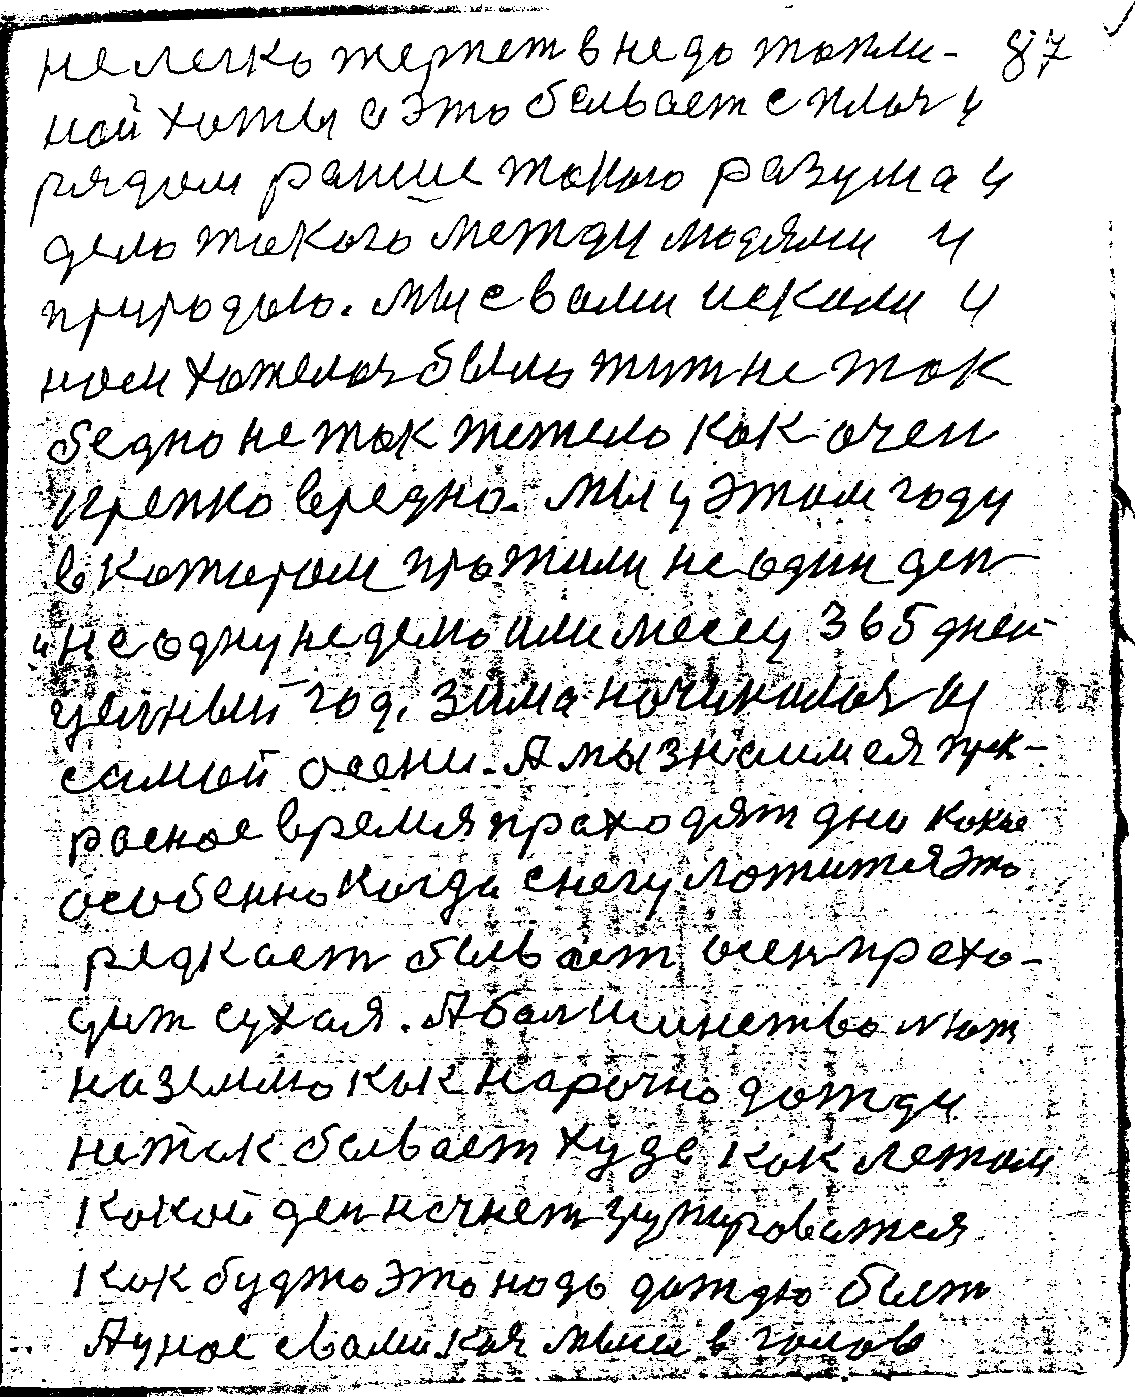 нелегко жержет в недотопли- 87
ной хотя а это бывает сплоч и
рядом ранше такого разума и
дело такого между людями и
природью. Мы с вами искали и
нам хотелоя было жит не так
бедно не так тежело как очен
крепко вредно. Мы у этом году
в котором прожили не один ден
и не одну неделю или месец 365 дней
целный год. Зима началалоя из
самой осени. А мы знаимся прек-
расное время праходят дни какие
особенно когда снегу ложится это
редкает бывает осен прахо-
дит сухая. А балшинство льют
на землю как нарочно дожди
не так бывает худо как летом
какой ден начнет
как будто это надо дождю быт
А у нас с вами кая мыш в голов